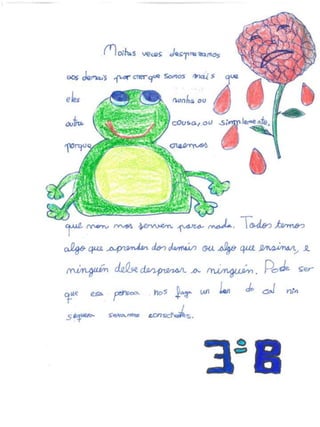 Moitas veces desprezamos
aos demais por crer que somos mais que
eles nunha ou
outra cousa, ou simplemente,
porque creemos
que non nos serven para nada. Todos temos
algo que aprender dos demais ou algo que ensinar, e
ninguén debe desprezar a ninguén. Pode ser
que esa persoa nos faga un ben do cal nin
sequera seremos conscientes.
3º B